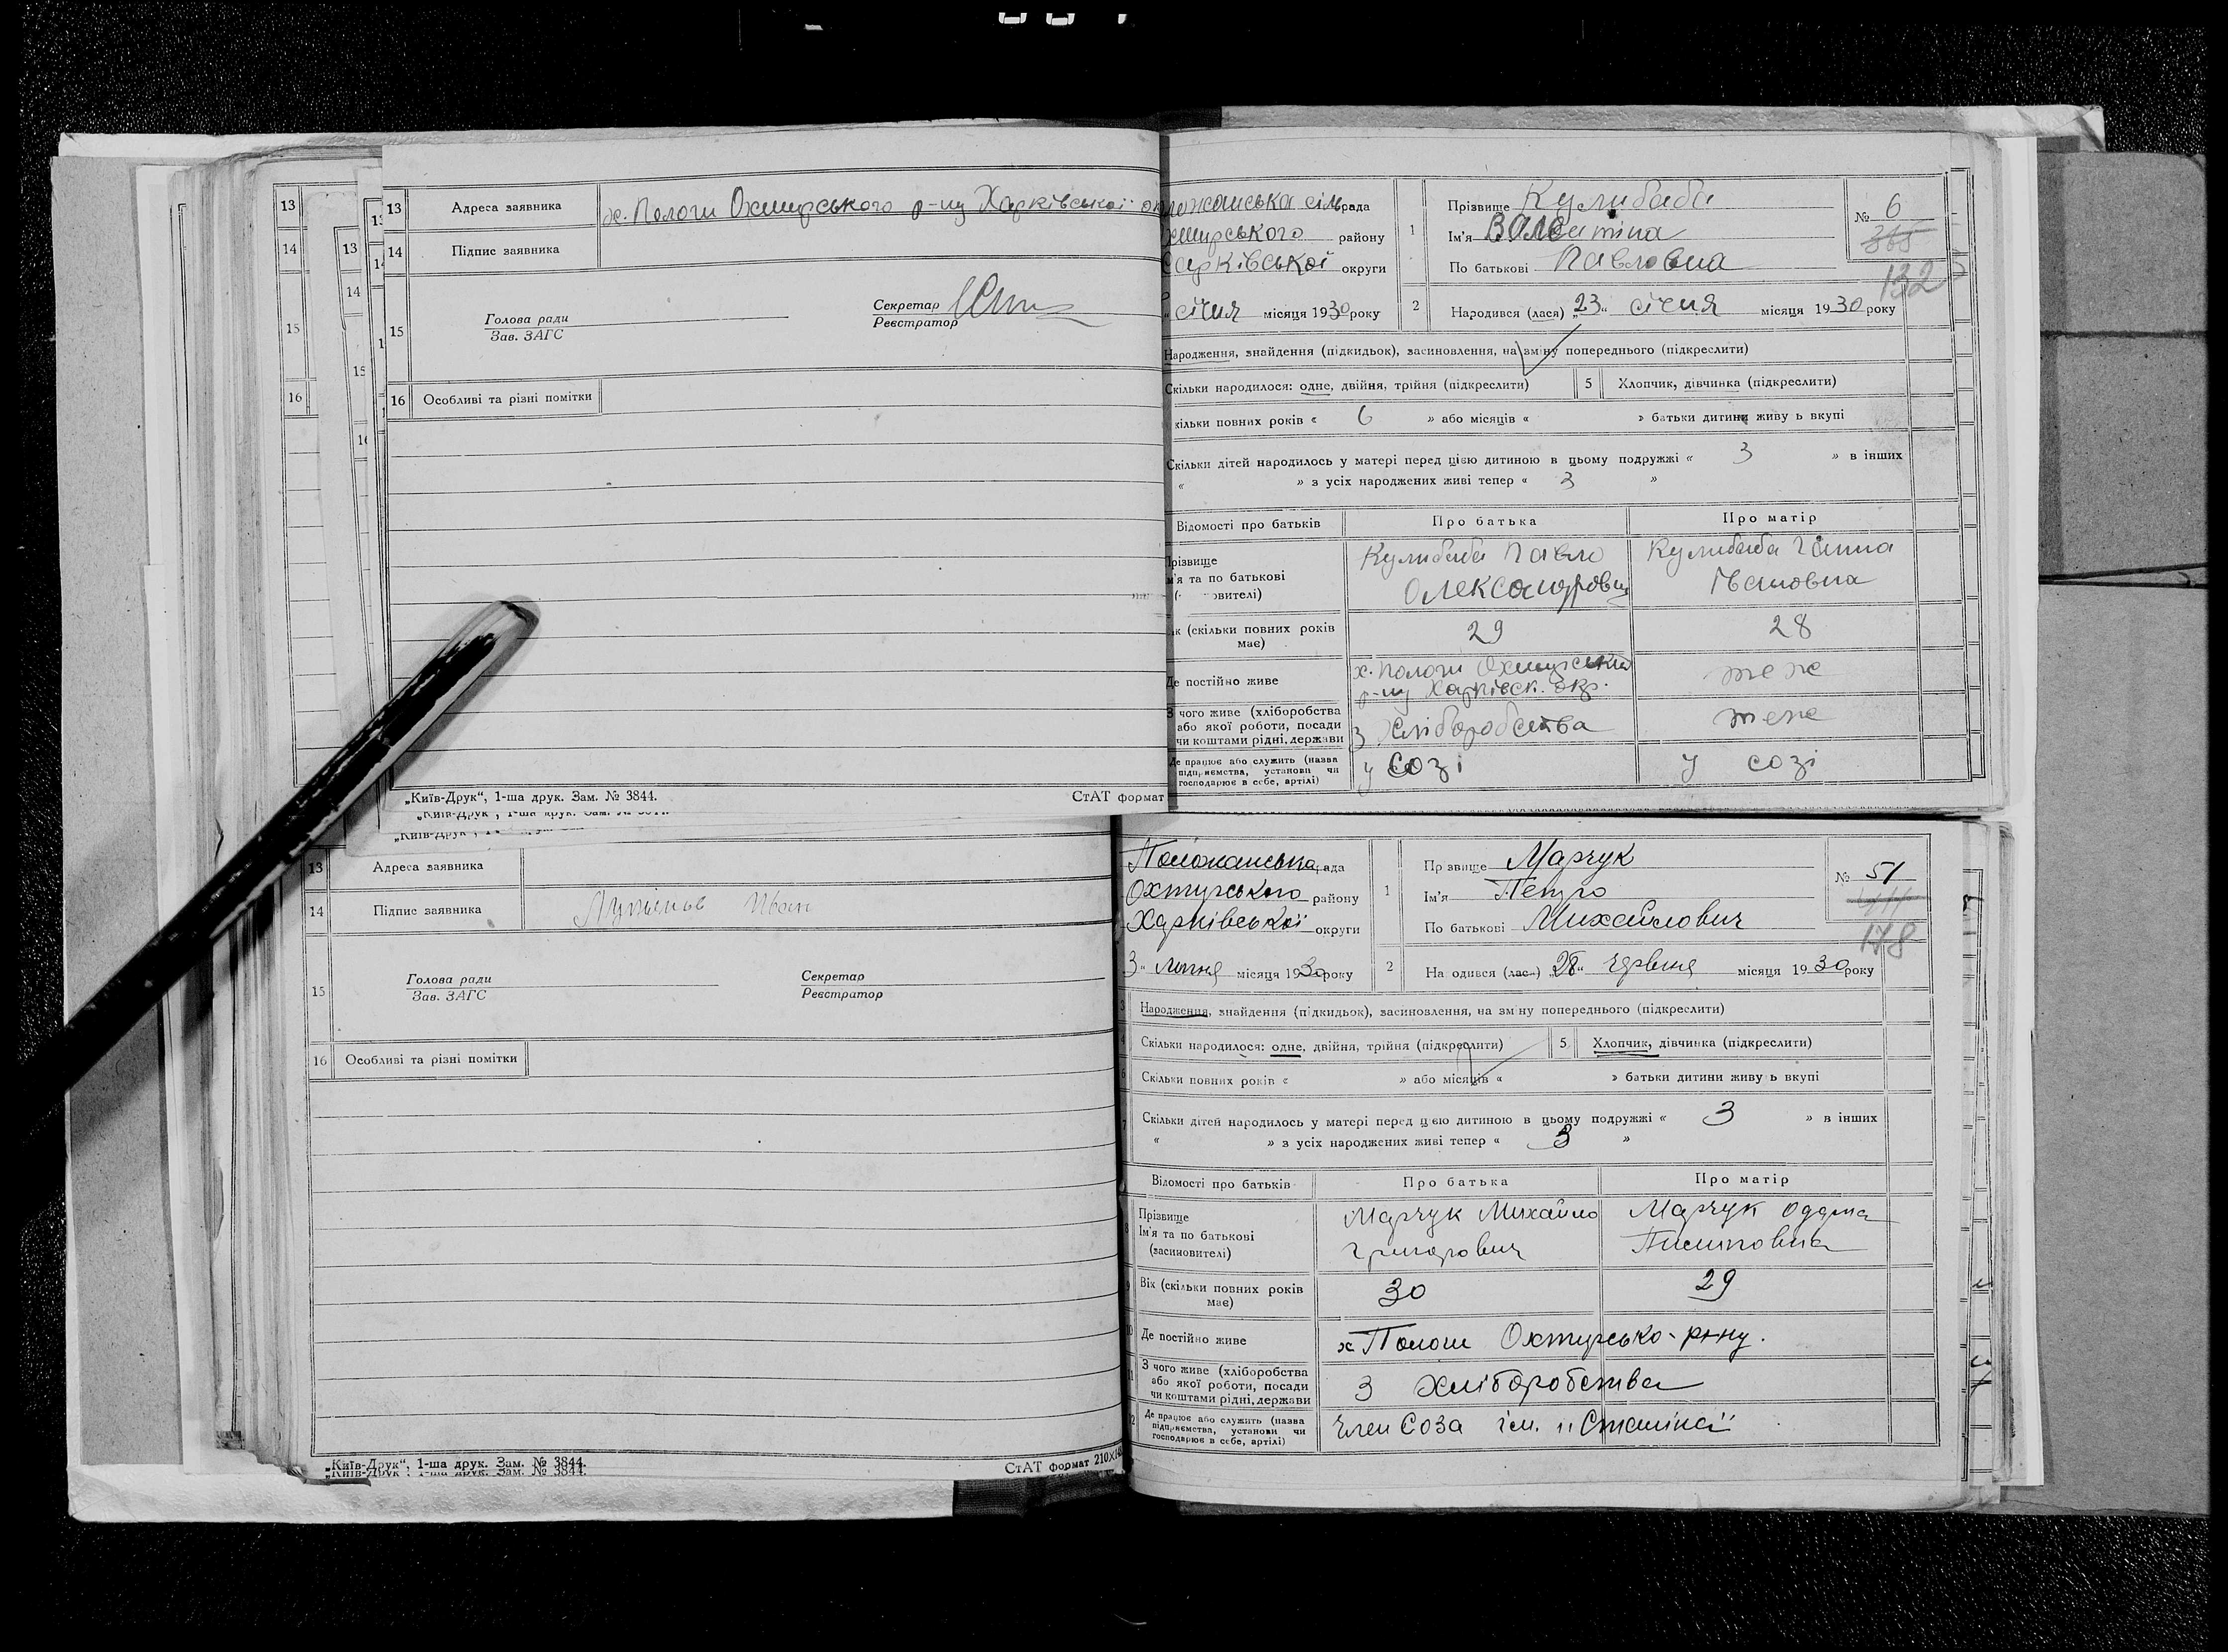 13 Адреса заявника х. Пологи Охтирського р-ну Харківської
14 Підпис заявника
15 Голова ради
Зав. ЗАГС
Секретар
Реєстратор
16 Особливі та різні помітки
„Київ-Друк“, 1-ша друк. Зам. № 3844.
СтАТ формат
сільрада
району
округи
січня місяця 1930 року
1 Прізвище Кулибаба
Ім'я Валентина
По батькові Павловна
№ 6
365
132
2 Народився (лася) „23“ січня місяця 1930 року
Народження, знайдення (підкидьок), засиновлення, на зміну попереднього (підкреслити)
Скільки народилося: одне, двійня, трійня (підкреслити) 5 Хлопчик, дівчинка (підкреслити)
кільки повних років « 6 » або місяців « » батьки дитини живу ь вкупі
Скільки дітей народилось у матері перед цією дитиною в цьому подружжі « 3 » в інших
« » з усіх народжених живі тепер « 3 »
Відомості про батьків Про батька Про матір
різвище
м'я та по батькові
Кулибаба Павло
Олександрович
Кулибаба Ганна
Івановна
ік (скільки повних років
має)
29 28
Де постійно живе
х. Пологи Охтирський
р-ну Харківськ. окр.
теж
З чого живе (хліборобства
або якої роботи, посади
чи коштами рідні, держави
з хліборобства
теж
Де працює або служить (назва
підприємства, установи чи
господарює в себе, артілі)
у созі у созі
13 Адреса заявника
14 Підпис заявника Іван
15 Голова ради
Зав. ЗАГС
Секретар
Реєстратор
16 Особливі та різні помітки
„Київ-Друк“, 1-ша друк. Зам. № 3844.
СтАТ формат 210х
Положанська рада
Охтирського району
Харківської округи
3“ липня місяця 1930 року
1 Пр звище Марчук
Ім'я Петро
По батькові Михайлович
№ 51
178
2 На одився (лася) „28“ червня місяця 1930 року
3 Народження, знайдення (підкидьок), засиновлення, на зміну попереднього (підкреслити)
4 Скільки народилося: одне, двійня, трійня (підкреслити) 5 Хлопчик, дівчинка (підкреслити)
6 Скільки повних років « » або місяців « » батьки дитини живу ь вкупі
7 Скільки дітей народилось у матері перед цією дитиною в цьому подружжі « 3 » в інших
« » з усіх народжених живі тепер « 3 »
Відомості про батьків Про батька Про матір
8 Прізвище
Ім'я та по батькові
(засиновителі)
Марчук Михайло
Григорович
Марчук Одарка
9 Вік (скільки повних років
має)
30 29
10 Де постійно живе х Пологи Охтирсько- р-ну.
11 З чого живе (хліборобства
або якої роботи, посади
чи коштами рідні, держави
З хліборобства
12 Де працює або служить (назва
підприємства, установи чи
господарює в себе, артілі)
Член Соза ім. „Сталіна“